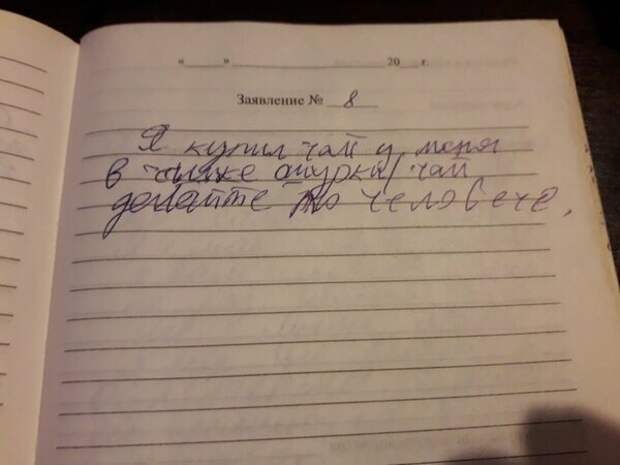 « » 20 г.
Заявление № 8
Я купил чай у меня
в чашке окурки/ чай
делайте по человече.